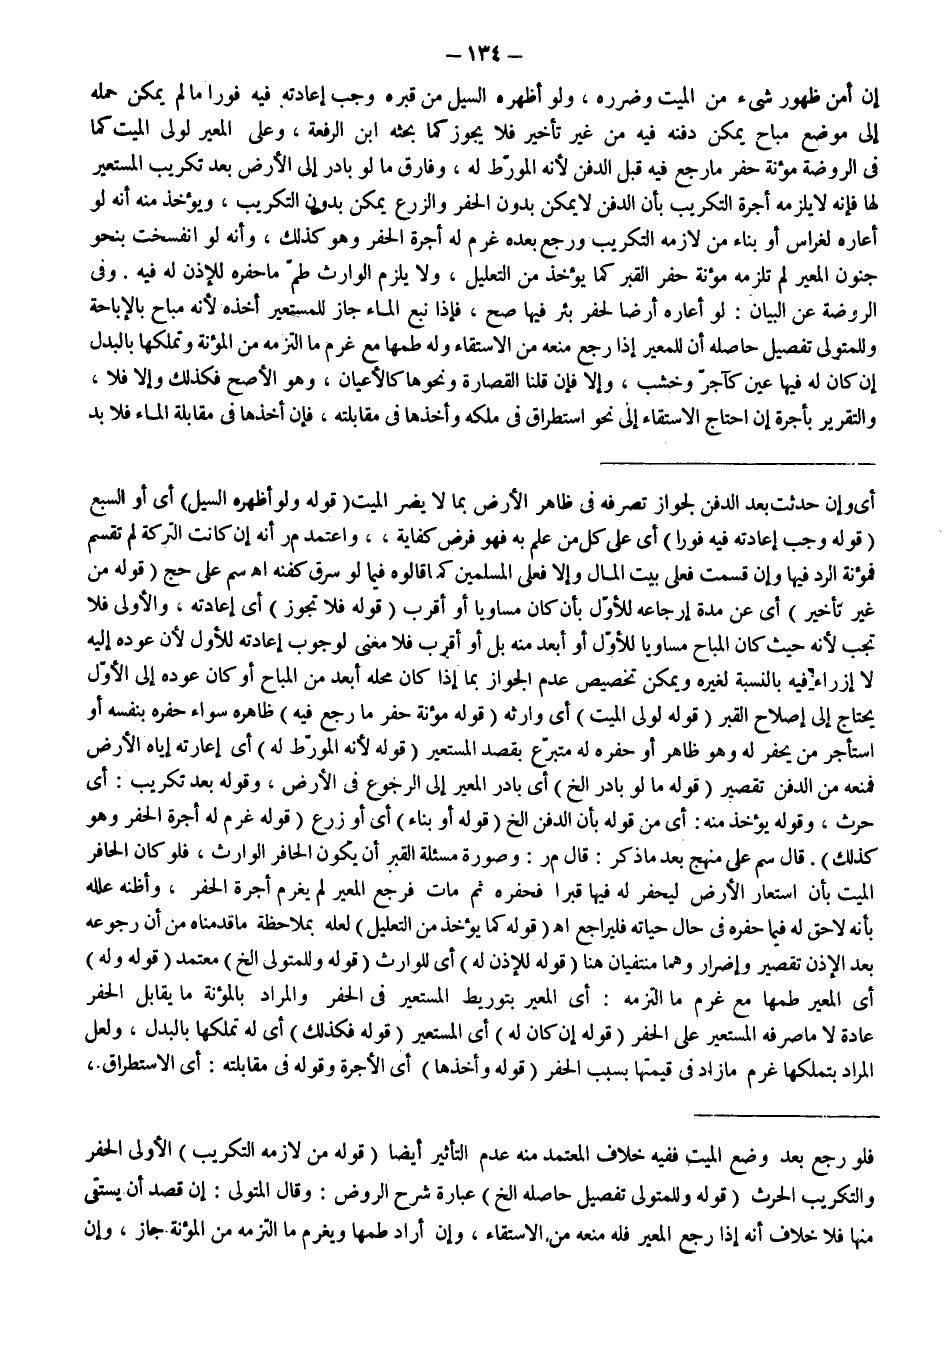 – ١٣٤ –
إن أمن ظهور شىء من الميت وضرره ، ولو أظهره السيل من قبره وجب إعادته فيه فورا مالم يمكن حمله
إلى موضع مباح يمكن دفنه فيه من غير تأخير فلا يجوز كما بحثه ابن الرفعة ، وعلى المعير لولى الميت كما
فى الروضة مؤنة حفر مارجع فيه قبل الدفن لأنه المورّط له ، وفارق ما لو بادر إلى الأرض بعد تكريب المستعير
لها فإنه لايلزمه أجرة التكريب بأن الدفن لايمكن بدون الحفر والزرع يمكن بدون التكريب ، ويؤخذ منه أنه لو
أعاره لغراس أو بناء من لازمه التكريب ورجع بعده غرم له أجرة الحفر وهو كذلك ، وأنه لو انفسخت بنحو
جنون المعير لم تلزمه مؤنة حفر القبر كما يؤخذ من التعليل ، ولا يلزم الوارث طمّ ماحفره للإذن له فيه . وفى
الروضة عن البيان : لو أعاره أرضا لحفر بئر فيها صح ، فإذا نبع المـاء جاز للمستعير أخذه لأنه مباح بالإباحة
وللمتولى تفصيل حاصله أن للمعير إذا رجع منعه من الاستقاء وله طمها مع غرم ما التزمه من المؤنة وتملكها بالبدل
إن كان له فيها عين كآجرّ وخشب ، وإلا فإن قلنا القصارة ونحوها كالأعيان ، وهو الأصح فكذلك وإلا فلا ،
والتقرير بأجرة إن احتاج الاستقاء إلى نحو استطراق فى ملكه وأخذها فى مقابلته ، فإن أخذها فى مقابلة المـاء فلا بد
أى وإن حدثت بعد الدفن لجواز تصرفه فى ظاهر الأرض بما لا يضر الميت ( قوله ولو أظهره السيل) أى أو السبع
( قوله وجب إعادته فيه فورا ) أى على كل من علم به فهو فرض كفاية ، ، واعتمد مر أنه إن كانت التركة لم تقسم
فمؤنة الرد فيها وإن قسمت فعلى بيت المـال وإلا فعلى المسلمين كما قالوه فيما لو سرق كفنه اه سم على حج ( قوله من
غير تأخير ) أى عن مدة إرجاعه للأوّل بأن كان مساويا أو أقرب ( قوله فلا تجوز ) أى إعادته ، والأولى فلا
تجب لأنه حيث كان المباح مساويا للأوّل أو أبعد منه بل أو أقرب فلا معنى لوجوب إعادته للأول لأن عوده إليه
لا إزراء فيه بالنسبة لغيره ويمكن تخصيص عدم الجواز بما إذا كان محله أبعد من المباح أو كان عوده إلى الأوّل
يحتاج إلى إصلاح القبر ( قوله لولى الميت ) أى وارثه ( قوله مؤنة حفر ما رجع فيه ) ظاهره سواء حفره بنفسه أو
استأجر من يحفر له وهو ظاهر أو حفره له متبرّع بقصد المستعير ( قوله لأنه المورّط له ) أى إعارته إياه الأرض
فمنعه من الدفن تقصير ( قوله ما لو بادر الخ ) أى بادر المعير إلى الرجوع فى الأرض ، وقوله بعد تكريب : أى
حرث ، وقوله يؤخذ منه : أى من قوله بأن الدفن الخ ( قوله أو بناء ) أى أو زرع ( قوله غرم له أجرة الحفر وهو
كذلك ) . قال سم على منهج بعد ماذكر : قال مر : وصورة مسئلة القبر أن يكون الحافر الوارث ، فلو كان الحافر
الميت بأن استعار الأرض ليحفر له فيها قبرا فحفره ثم مات فرجع المعير لم يغرم أجرة الحفر ، وأظنه علله
بأنه لاحق له فيما حفره فى حال حياته فليراجع اه ( قوله كما يؤخذ من التعليل ) لعله بملاحظة ماقدمناه من أن رجوعه
بعد الإذن تقصير وإضرار وهما منتفيان هنا ( قوله للإذن له ) أى للوارث ( قوله وللمتولى الخ ) معتمد ( قوله وله )
أى المعير طمها مع غرم ما التزمه : أى المعير بتوريط المستعير فى الحفر والمراد بالمؤنة ما يقابل الحفر
عادة لا ماصرفه المستعير على الحفر ( قوله إن كان له ) أى المستعير ( قوله فكذلك ) أى له تملكها بالبدل ، ولعل
المراد بتملكها غرم مازاد فى قيمتها بسبب الحفر ( قوله وأخذها ) أى الأجرة وقوله فى مقابلته : أى الاستطراق ،
فلو رجع بعد وضع الميت ففيه خلاف المعتمد منه عدم التأثير أيضا ( قوله من لازمه التكريب ) الأولى الحفر
والتكريب الحرث ( قوله وللمتولى تفصيل حاصله الخ ) عبارة شرح الروض : وقال المتولى : إن قصد أن يستقى
منها فلا خلاف أنه إذا رجع المعير فله منعه من الاستقاء ، وإن أراد طمها ويغرم ما التزمه من المؤنة جاز ، وإن